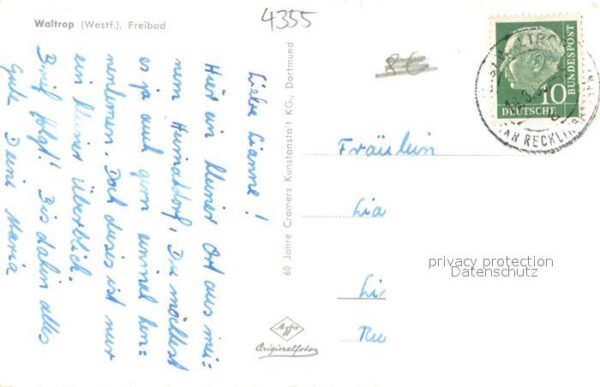 4355
Waltrop (Westf.). Freibad
Liebe Lianne!
Hier ein kleiner Ort aus mei=
nem Heimatdorf, Du möchtest
es ja auch gern einmal ken=
nenlernen. Doch dieses ist nur
ein kleiner Überblick.
Brief folgt! Bis dahin alles
Gute Deine Maria
60 Jahre Cramers Kunstanstalt KG., Dortmund
Agfa
Originalfoto
10
DEUTSCHE
BUNDESPOST
RECKLIN
Fräulein
Lia
privacy protection
Datenschutz
Li